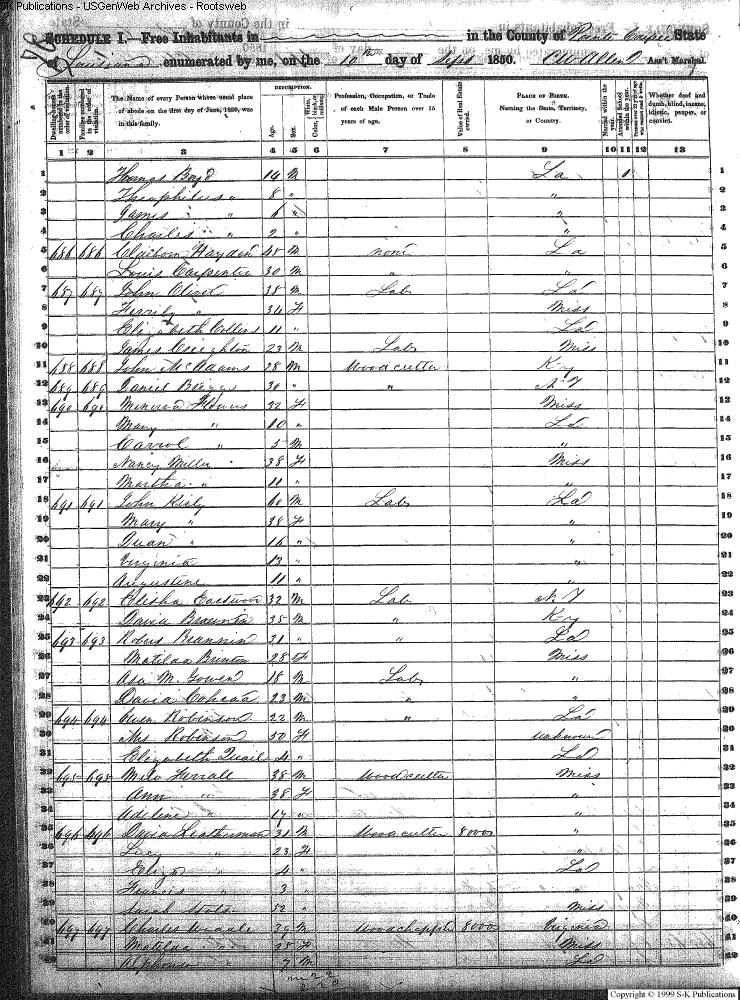 S-K Publications - USGenWeb Archives - Rootsweb
SCHEDULE I.—Free Inhabitants in in the County of Point Coupee State
of Louisiana enumerated by me, on the 10th day of Sept 1850. Ass't Marshal.
DESCRIPTION.
Dwelling-houses numbered in the order of visitation.
Families numbered in the order of visitation.
The Name of every Person whose usual place of abode on the first day of June, 1850, was in this family.
Age.
Sex.
Color, White, black, or mulatto.
Profession, Occupation, or Trade of each Male Person over 15 years of age.
Value of Real Estate owned.
PLACE OF BIRTH. Naming the State, Territory, or Country.
Married within the year.
Attended School within the year.
Persons over 20 y'rs of age who cannot read & write.
Whether deaf and dumb, blind, insane, idiotic, pauper, or convict.
1 2 3 4 5 6 7 8 9 10 11 12 13
1 Thomas Boyd 14 M La 1 1
2 Theophilus " 8 " " 2
3 James " " 6 " " 3
4 Charles " " 2 " " 4
5 686 686 Claiborn Hayden 48 M none La 5
6 Louis Carpenter 30 M " " 6
7 687 687 John Oliver 38 M Lab La 7
8 " 34 F Miss 8
9 Elizabeth Collins 11 " La 9
10 James Creighton 23 M Lab Miss 10
11 688 688 John McAdams 28 M Woodcutter Ky 11
12 689 689 Daniel 30 " " N.Y 12
13 690 690 Minerva Flowers 32 F Miss 13
14 Mary " 10 " La 14
15 Carrol " 5 M " 15
16 Nancy Miller 38 F Miss 16
17 Martha " 11 " " 17
18 691 691 John Kirly 60 M Lab La 18
19 Mary " 38 F " 19
20 " 16 " " 20
21 Virginia 13 " " 21
22 Augustine 11 " " 22
23 692 692 Elisha Eastwood 32 M Lab N.Y 23
24 David 35 M " Ky 24
25 693 693 Robert Brannin 21 " " La 25
26 Matilda 28 F Miss 26
27 Asa M. Gowen 18 M Lab " 27
28 David 23 M " " 28
29 694 694 Owen Robinson 22 M " La 29
30 Mrs Robinson 50 F unknown 30
31 Elizabeth Quail 4 " La 31
32 695 695 Milo Ferrall 38 M Woodcutter Miss 32
33 Ann " 38 F " 33
34 Adeline " 17 " " 34
35 696 696 David Leatherman 31 M Woodcutter 8000 " 35
36 " 23 F " 36
37 Eliza " 4 " La 37
38 Francis " 3 " " 38
39 Sarah 52 " Miss 39
40 697 697 Charles 39 M Woodchopper 8000 Virginia 40
41 Matilda " 25 F Miss 41
42 Alphonse " 7 M La 42
Copyright © 1999 S-K Publications